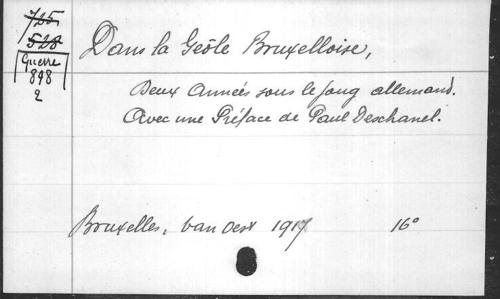 725
528
Guerre
898
2
Dans la Geôle Bruxelloise,
Deux Années sous le joug allemand.
Avec une Préface de Paul Deschanel.
Bruxelles, Van Oest 1917 16°